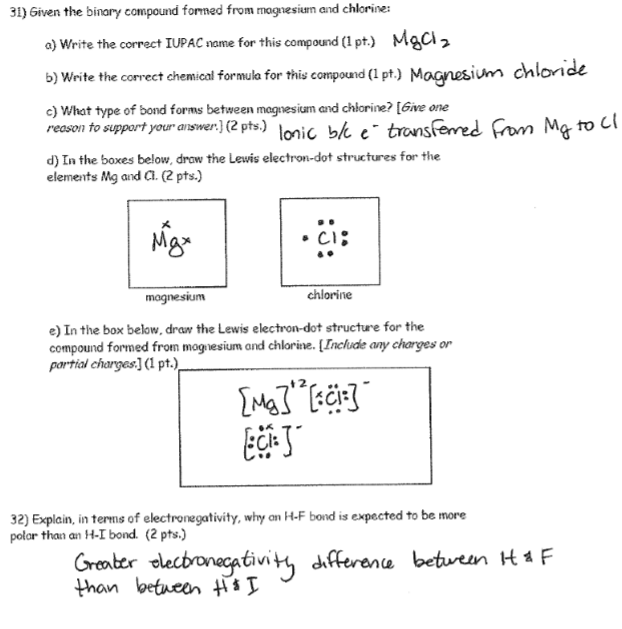 31) Given the binary compound formed from magnesium and chlorine:
a) Write the correct IUPAC name for this compound (1 pt.) MgCl2
b) Write the correct chemical formula for this compound (1 pt.) Magnesium chloride
c) What type of bond forms between magnesium and chlorine? [Give one
reason to support your answer.] (2 pts.) Ionic b/c e⁻ transferred from Mg to Cl
d) In the boxes below, draw the Lewis electron-dot structures for the
elements Mg and Cl. (2 pts.)
Mg Cl
magnesium chlorine
e) In the box below, draw the Lewis electron-dot structure for the
compound formed from magnesium and chlorine. [Include any charges or
partial charges.] (1 pt.)
[Mg]+2 [Cl]-
[Cl]-
32) Explain, in terms of electronegativity, why an H-F bond is expected to be more
polar than an H-I bond. (2 pts.)
Greater electronegativity difference between H & F
than between H & I